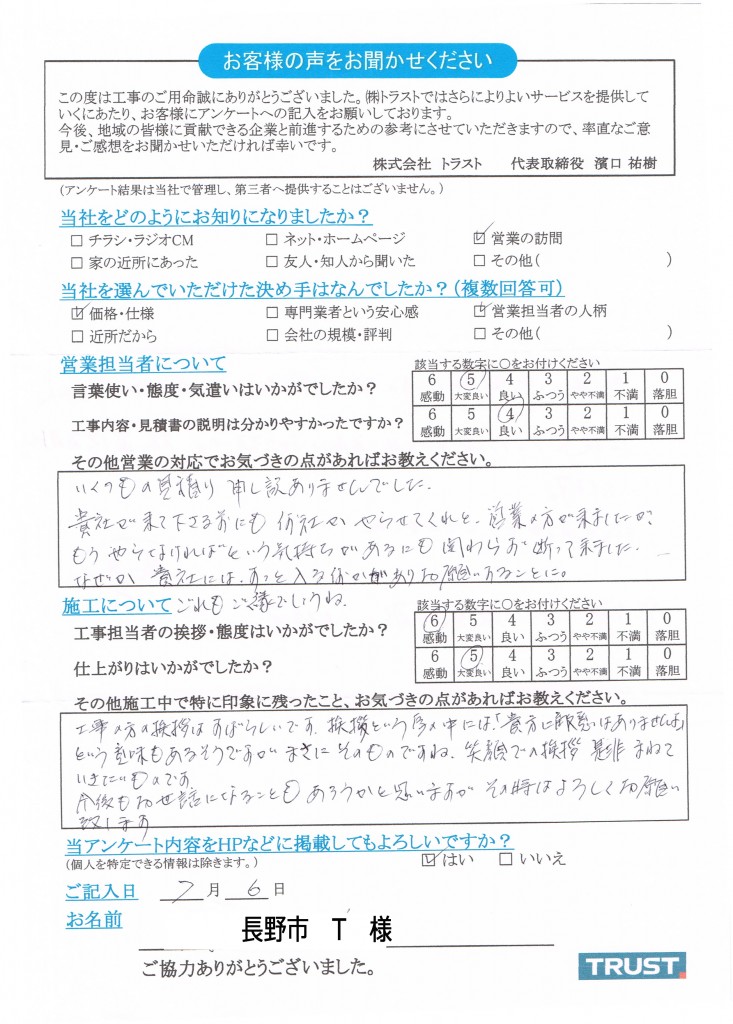 お客様の声をお聞かせください
この度は工事のご用命誠にありがとうございました。㈱トラストではさらによりよいサービスを提供して
いくにあたり、お客様にアンケートへの記入をお願いしております。
今後、地域の皆様に貢献できる企業と前進するための参考にさせていただきますので、率直なご意
見・ご感想をお聞かせいただければ幸いです。
株式会社 トラスト 代表取締役 濱口 祐樹
(アンケート結果は当社で管理し、第三者へ提供することはございません。)
当社をどのようにお知りになりましたか?
□ チラシ・ラジオCM □ ネット・ホームページ ☑ 営業の訪問
□ 家の近所にあった □ 友人・知人から聞いた □ その他( )
当社を選んでいただけた決め手はなんでしたか?(複数回答可)
☑ 価格・仕様 □ 専門業者という安心感 ☑ 営業担当者の人柄
□ 近所だから □ 会社の規模・評判 □ その他( )
営業担当者について 該当する数字に○をお付けください
言葉使い・態度・気遣いはいかがでしたか?
6 5 4 3 2 1 0
感動 大変良い 良い ふつう やや不満 不満 落胆
工事内容・見積書の説明は分かりやすかったですか?
6 5 4 3 2 1 0
感動 大変良い 良い ふつう やや不満 不満 落胆
その他営業の対応でお気づきの点があればお教えください。
いくつもの見積り 申し訳ありませんでした。
貴社が来て下さる前にも 何社か やらせてくれと、営業の方が来ましたが、
もうやらなければという気持ちがあるにも関わらず断って来ました。
なぜか 貴社には、すっと入る何かがありお願いすることに。
これもご縁でしょうね。
施工について 該当する数字に○をお付けください
工事担当者の挨拶・態度はいかがでしたか?
6 5 4 3 2 1 0
感動 大変良い 良い ふつう やや不満 不満 落胆
仕上がりはいかがでしたか?
6 5 4 3 2 1 0
感動 大変良い 良い ふつう やや不満 不満 落胆
その他施工中で特に印象に残ったこと、お気づきの点があればお教えください。
工事の方の挨拶はすばらしいです。挨拶という意味の中には、「貴方に敵意はありませんよ」
という意味もあるそうですが まさに そのものですね。笑顔での挨拶 是非 まねて
いきたいものです
今後もお世話になることも あろうかと思いますが その時はよろしくお願い
致します
当アンケート内容をHPなどに掲載してもよろしいですか?
(個人を特定できる情報は除きます。) ☑ はい □ いいえ
ご記入日 7 月 6 日
お名前 長野市 T 様
ご協力ありがとうございました。
TRUST.